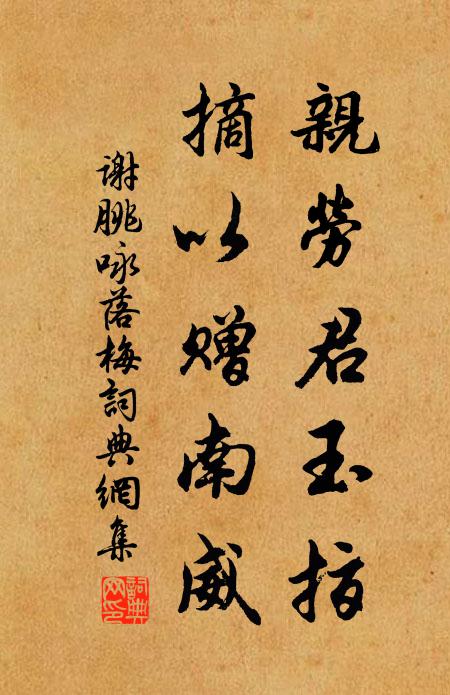 親勞君玉指
摘以贈南威
谢朓咏落梅詞典網集
詞典網印